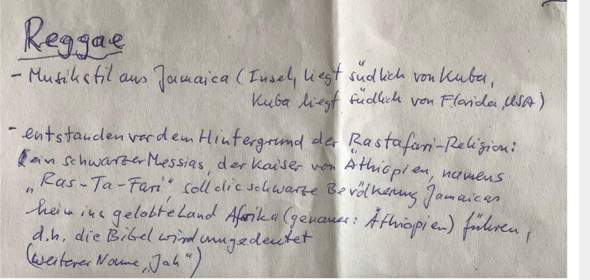 Reggae
- Musikstil aus Jamaica (Insel, liegt südlich von Kuba,
Kuba liegt südlich von Florida, USA)
- entstanden vor dem Hintergrund der Rastafari-Religion:
(ein schwarzer Messias, der Kaiser von Äthiopien, namens
„Ras-Ta-Fari“, soll die schwarze Bevölkerung Jamaicas
heim ins gelobte Land Afrika (genauer: Äthiopien) führen,
d.h. die Bibel wird umgedeutet
(weiterer Name „Jah“)